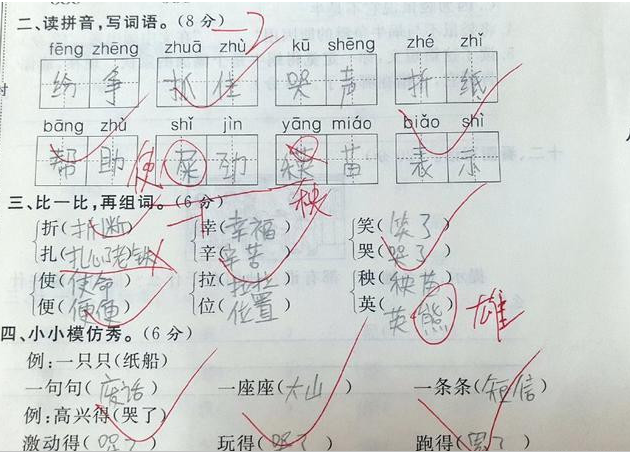 二、读拼音，写词语。（8分） -2
fēng zhēng zhuā zhù kū shēng zhé zhǐ
纷争 抓住 哭声 折纸
bāng zhù shǐ jìn yāng miáo biǎo shì
帮助 使 屎劲 苗 表示
秧
三、比一比，再组词。（6分） -1
折（折断） 幸（幸福） 笑（笑了）
扎（扎心了老铁） 辛（辛苦） 哭（哭了）
使（使命） 拉（拉拉） 秧（秧苗）
便（便便） 位（位置） 英（英熊） 雄
四、小小模仿秀。（6分）
例：一只只（纸船）
一句句（废话） 一座座（大山） 一条条（短信）
例：高兴得（哭了）
激动得（哭了） 玩得（哭了） 跑得（累了）